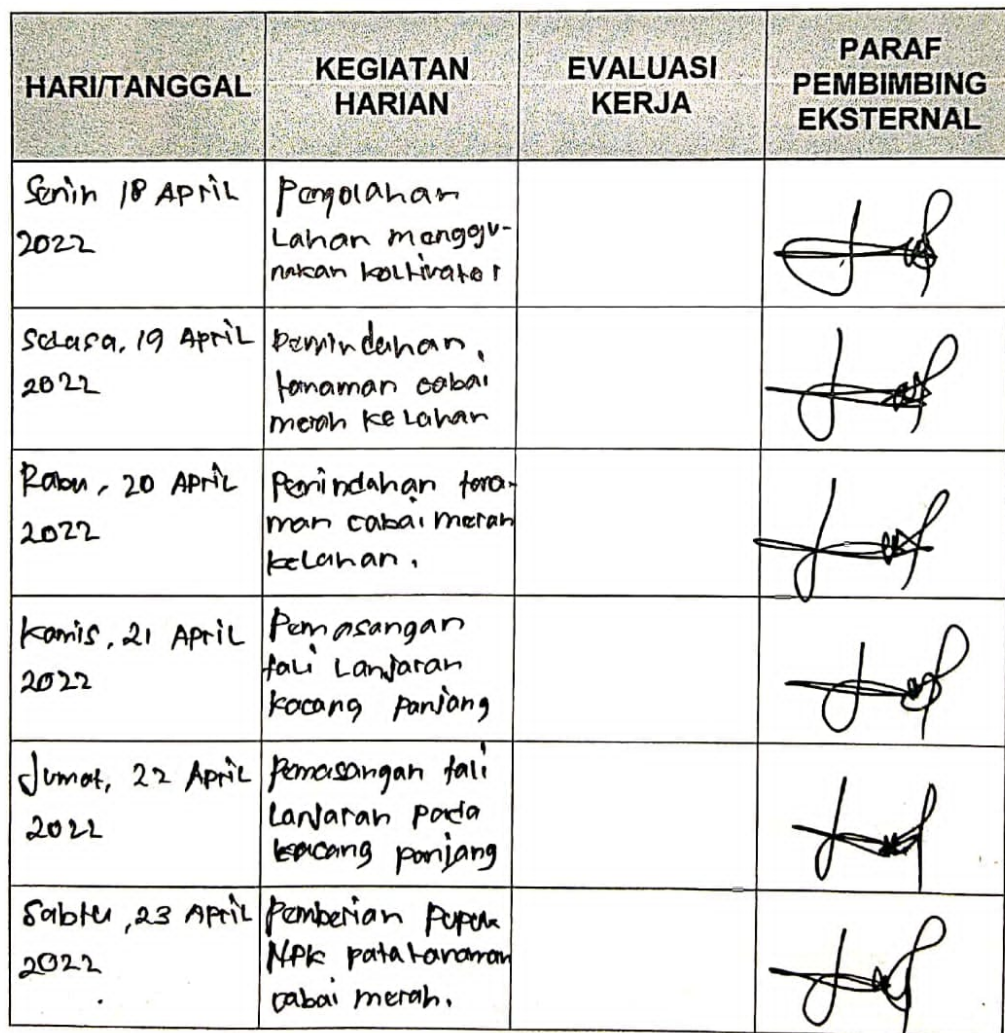 HARI/TANGGAL
KEGIATAN
HARIAN
EVALUASI
KERJA
PARAF
PEMBIMBING
EKSTERNAL
Senin 18 April
2022
Pengolahan
Lahan menggu-
nakan kultivator
Selasa, 19 April
2022
Pemindahan
tanaman cabai
merah ke Lahan
Rabu, 20 April
2022
Pemindahan tana-
man cabai merah
kelahan.
Kamis, 21 April
2022
Pemasangan
tali Lanjaran
kacang panjang
Jumat, 22 April
2022
Pemasangan tali
Lanjaran pada
kacang panjang
Sabtu, 23 April
2022
Pemberian Pupuk
NPK pata tanaman
cabai merah.